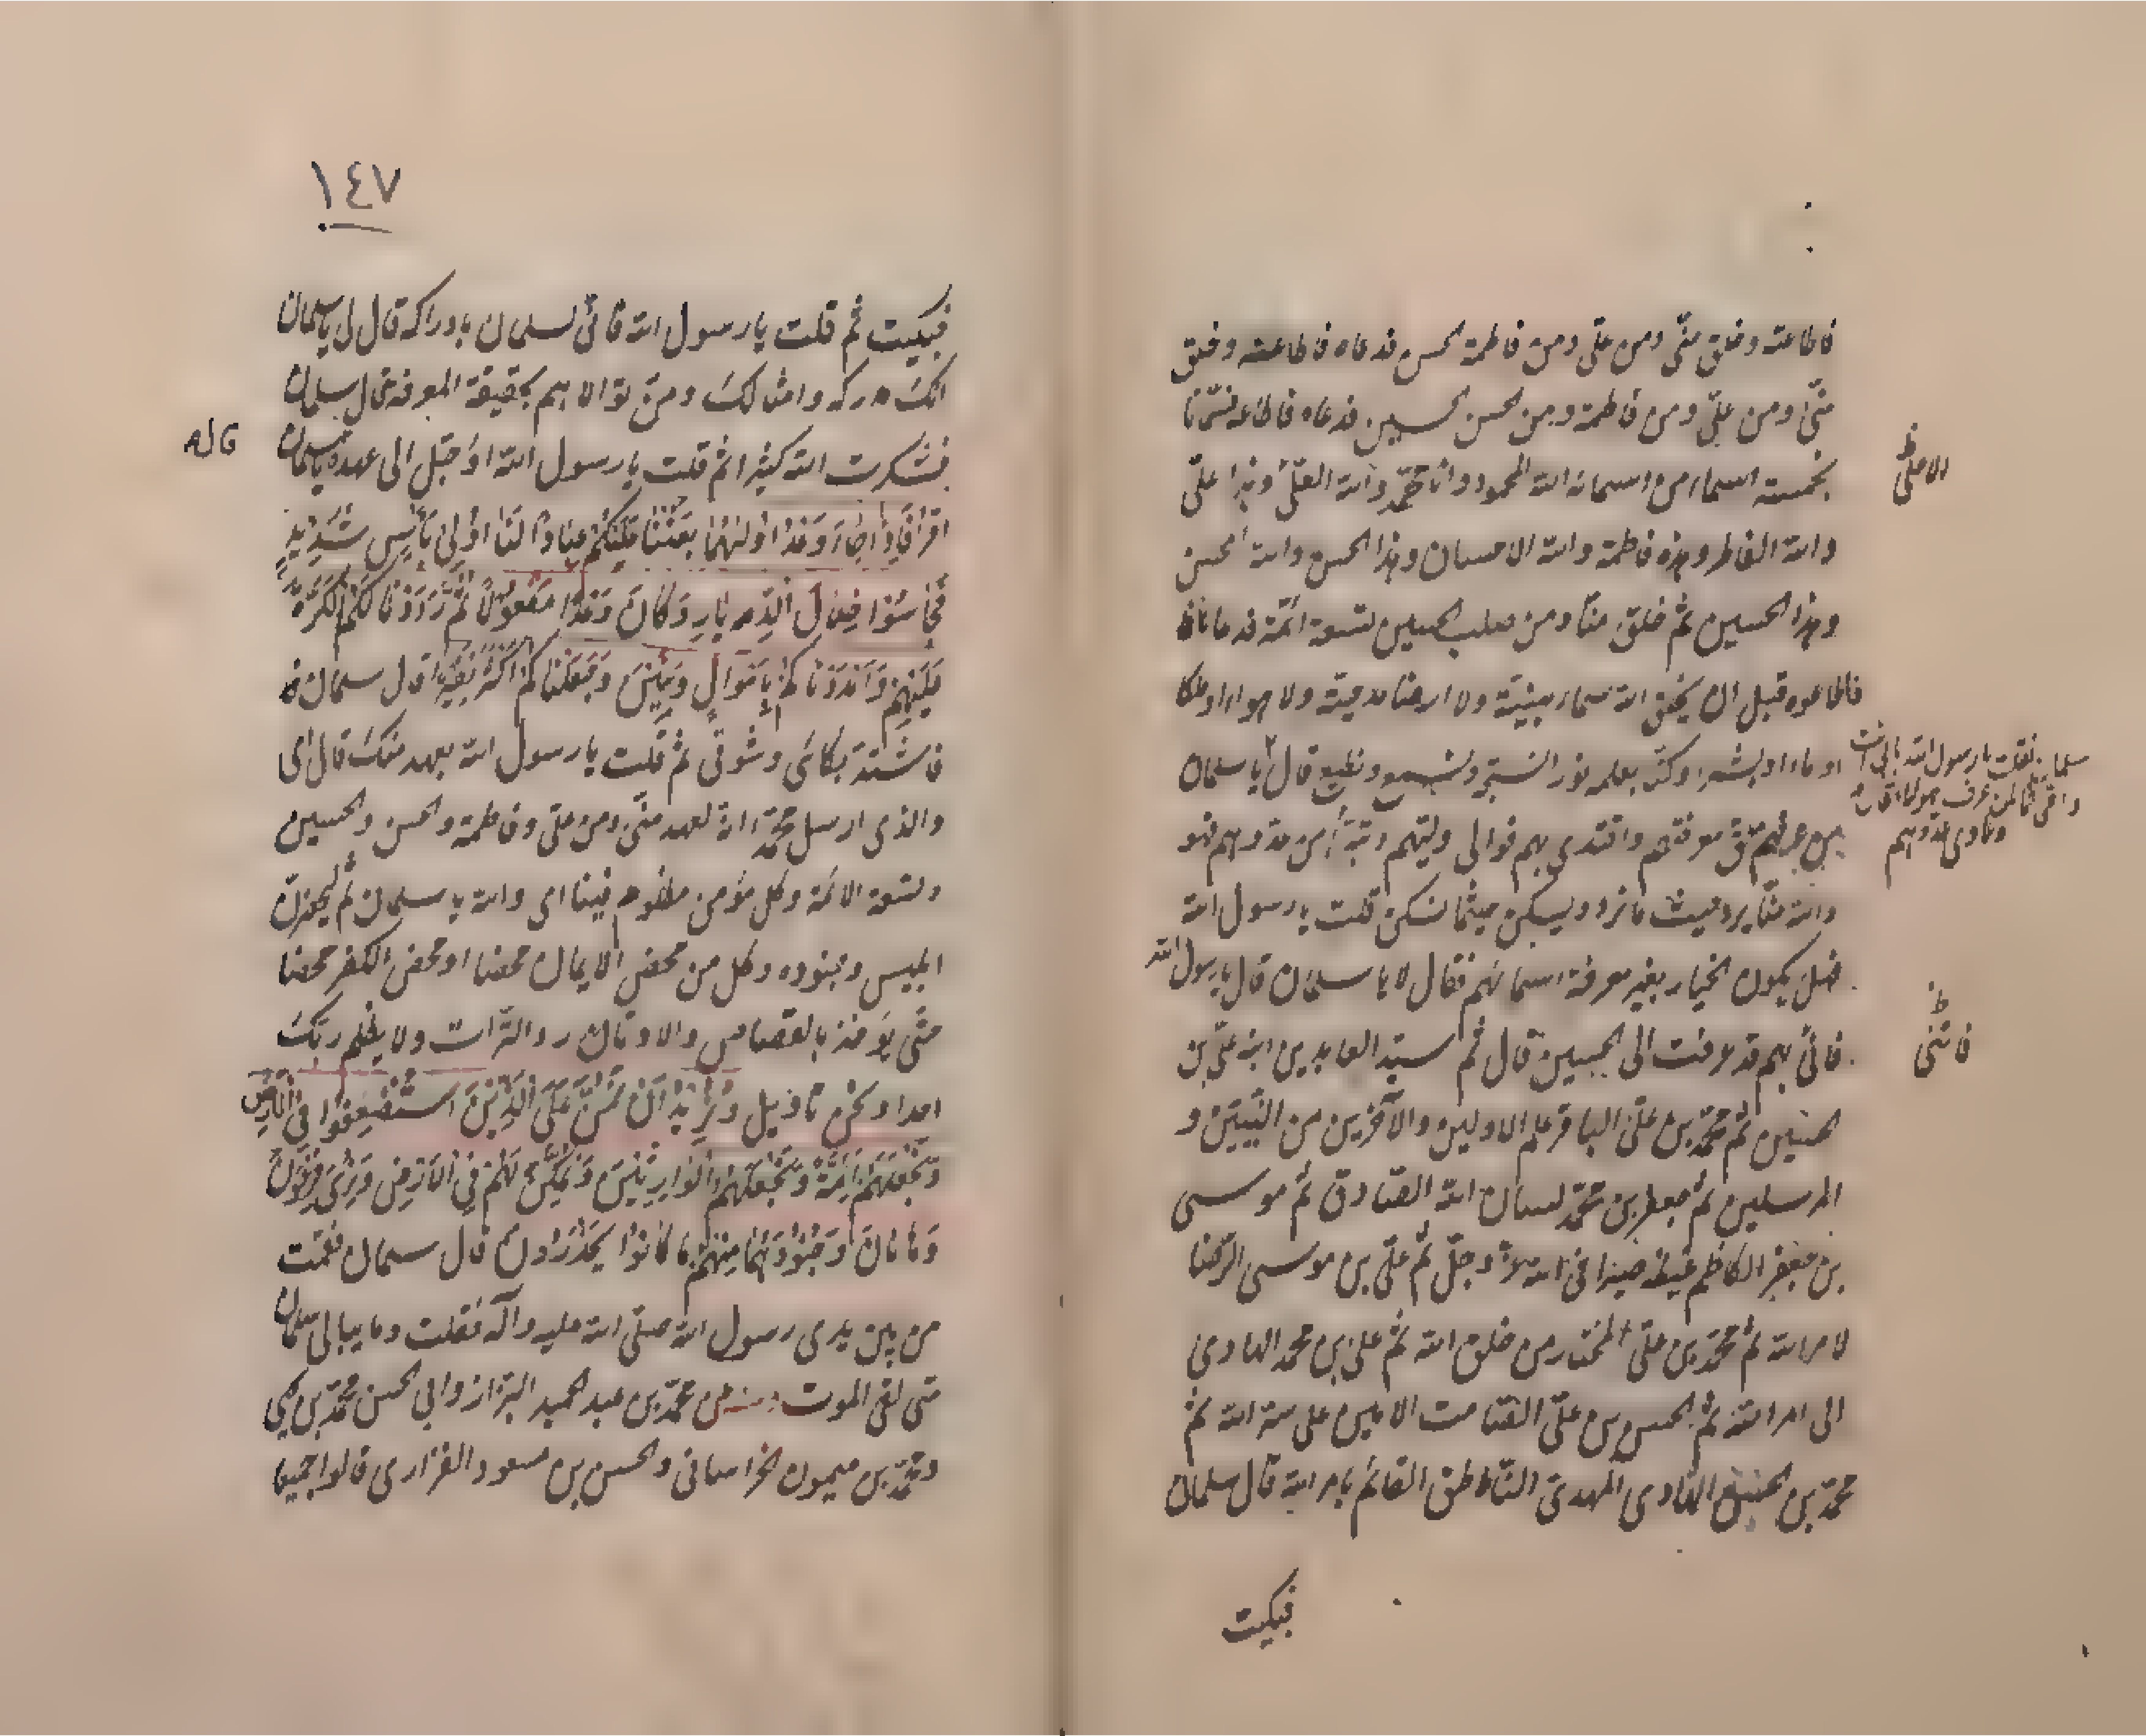 فاطاعته وخلق منّي ومن عليّ ومن فاطمة الحسن فدعاه فاطاعته وخلق
منّي ومن عليّ ومن فاطمة ومن الحسن الحسين فدعاه فاطاعه فسمّانا
بخمسة اسماء من اسمائه الله المحمود وانا محمّد والله العليّ وهذا عليّ
والله الفاطر وهذه فاطمة والله الاحسان وهذا الحسن والله المحسن
وهذا الحسين ثم خلق منّا ومن صلب الحسين تسعة ائمّة فدعاهم
فاطاعوه قبل ان يخلق الله سماء مبنيّة ولا ارضا مدحيّة ولا هواء او ملكا
او ماء او بشرا وكنّا بعلمه نورا نسبّحه ونسمع ونطيع قال يا سلمان
من عرفهم حقّ معرفتهم واقتدى بهم فوالى وليّهم وتبرّأ من عدوهم فهو
والله منّا يرد حيث نرد ويسكن حيثما نسكن قلت يا رسول الله
فهل يكون الخيار بغير معرفة اسمائهم فقال لا يا سلمان قال يا رسول الله
فانّي بهم قد عرفت الى الحسين قال ثم سيّد العابدين ابنه عليّ بن
الحسين ثم محمّد بن عليّ الباقر علم الاولين والآخرين من النبيّين و
المرسلين ثم جعفر بن محمّد لسان الله الصّادق ثم موسى
بن جعفر الكاظم غيظه صبرا في الله عزّ وجلّ ثم عليّ بن موسى الرّضا
لامر الله ثم محمّد بن عليّ المختار من خلق الله ثم علي بن محمد الهادي
الى امر الله ثم الحسن بن عليّ الصّامت الامين على سرّ الله ثم
محمّد بن الحسن الهادي المهديّ النّاطق القائم بامر الله قال سلمان
فبكيت
الاعلى
سلمان فقلت يا رسول الله بابي انت
وامّي لمن عرف هؤلاء قال
وعادى عدوهم
فانّى
١٤٧
فبكيت ثم قلت يا رسول الله فانّى لسلمان بادراكه قال لي يا سلمان
انّك مدركه وامثالك ومن توالاهم بحقيقة المعرفة قال سلمان
فشكرت الله كثيرا ثم قلت يا رسول الله اؤجّل الى عهده يا سلمان
قال
اقرأ فَاِذٰا جٰاءَ وَعْدُ اُولٰيهُمٰا بَعَثْنٰا عَلَيْكُمْ عِبٰاداً لَنٰا اُولِي بَأْسٍ شَدِيدٍ
فَجٰاسُوا خِلٰالَ الدِّيٰارِ وَكٰانَ وَعْداً مَفْعُولاً ثُمَّ رَدَدْنٰا لَكُمُ الْكَرَّةَ
عَلَيْهِمْ وَاَمْدَدْنٰاكُمْ بِاَمْوٰالٍ وَبَنِينَ وَجَعَلْنٰاكُمْ اَكْثَرَ نَفِيراً قال سلمان
فاشتدّ بكائي وشوقي ثم قلت يا رسول الله بعهد منك قال اي
والذي ارسل محمّدا انّه لعهد منّي ومن عليّ وفاطمة والحسن والحسين
وتسعة الائمّة وكل مؤمن مظلوم فينا اي والله يا سلمان ثم ليحضرنّ
ابليس وجنوده وكل من محض الايمان محضا او محض الكفر محضا
حتّى يؤخذ بالقصاص والاوتار والتّراث ولا يظلم ربّك
احدا ونحن تاويل وَنُرِيدُ اَنْ نَمُنَّ عَلَى الَّذِينَ اسْتُضْعِفُوا فِي الْاَرْضِ
وَنَجْعَلَهُمْ اَئِمَّةً وَنَجْعَلَهُمُ الْوٰارِثِينَ وَنُمَكِّنَ لَهُمْ فِي الْاَرْضِ وَنُرِيَ فِرْعَوْنَ
وَهٰامٰانَ وَجُنُودَهُمٰا مِنْهُمْ مٰا كٰانُوا يَحْذَرُونَ قال سلمان فقمت
من بين يدي رسول الله صلّى الله عليه وآله فقلت وما يبالي سلمان
متى لقى الموت وعن محمّد بن عبد الحميد البزّاز وابي الحسن محمّد بن يحيى
ومحمّد بن ميمون الخراساني والحسن بن مسعود الفزاري قالوا جميعا